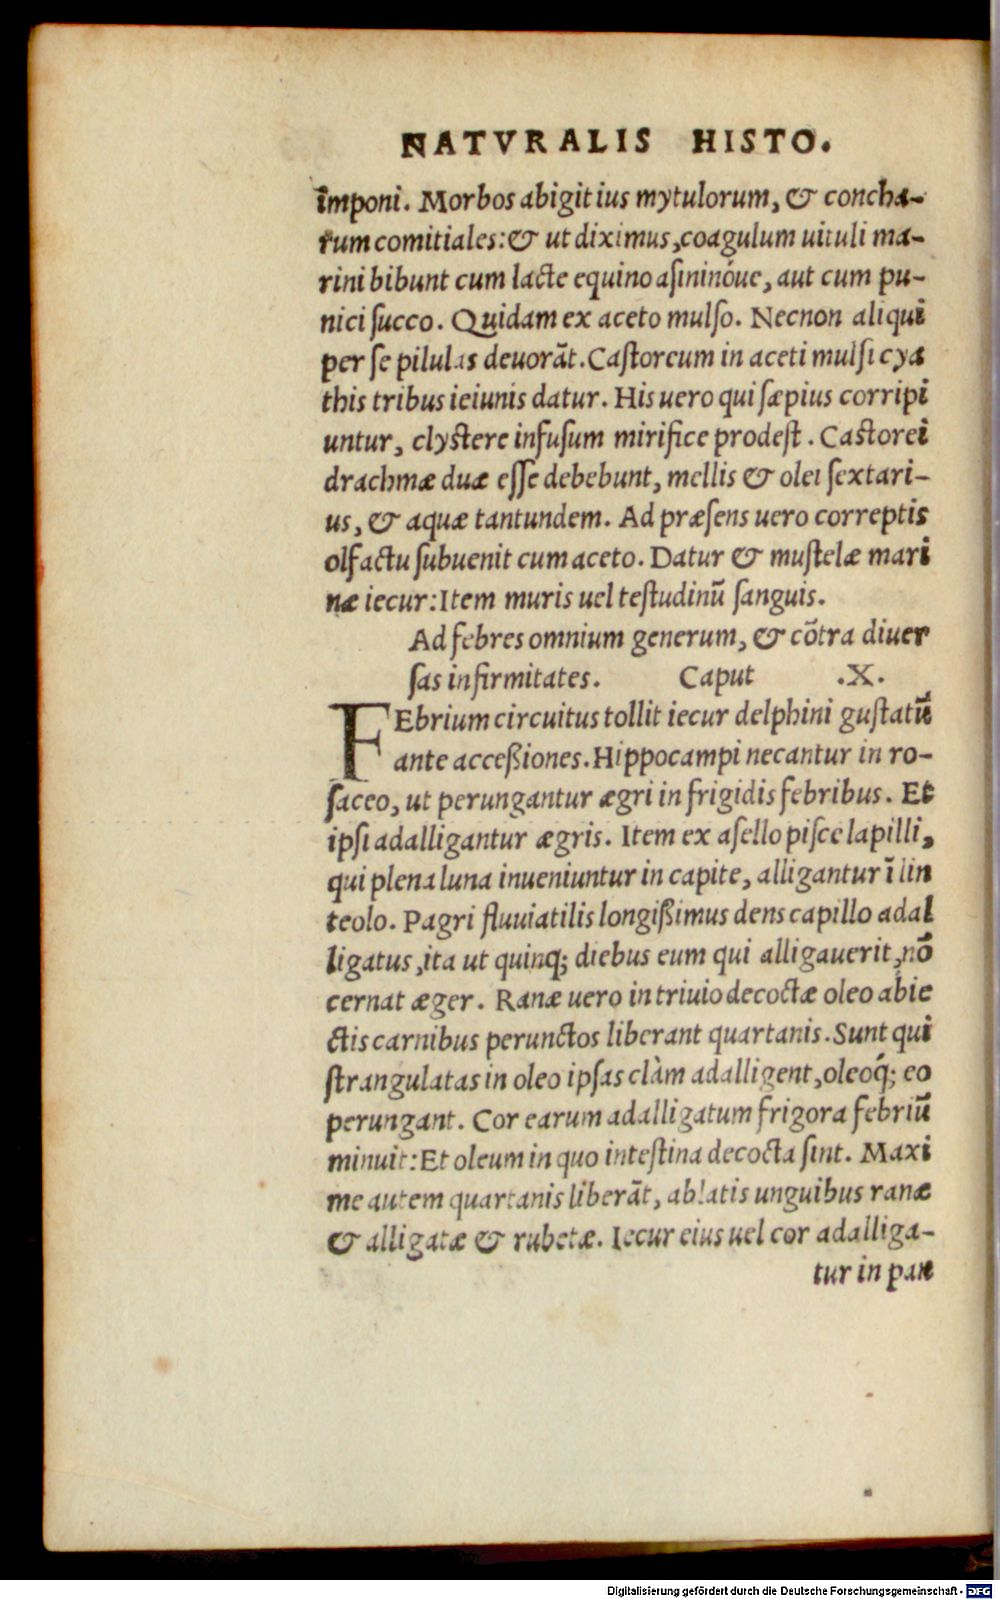 NATVRALIS HISTO.
imponi. Morbos abigit ius mytulorum, & concha-
rum comitiales: & ut diximus, coagulum uituli ma-
rini bibunt cum lacte equino asininóue, aut cum pu-
nici succo. Quidam ex aceto mulso. Necnon aliqui
per se pilulas deuorāt. Castoreum in aceti mulsi cya
this tribus ieiunis datur. His uero qui sæpius corripi
untur, clystere infusum mirifice prodest. Castorei
drachmæ duæ esse debebunt, mellis & olei sextari-
us, & aquæ tantundem. Ad præsens uero correptis
olfactu subuenit cum aceto. Datur & mustelæ mari
næ iecur: Item muris uel testudinū sanguis.
Ad febres omnium generum, & cōtra diuer
sas infirmitates. Caput .X.
FEbrium circuitus tollit iecur delphini gustatū
ante acceßiones. Hippocampi necantur in ro-
saceo, ut perungantur ægri in frigidis febribus. Et
ipsi adalligantur ægris. Item ex asello pisce lapilli,
qui plena luna inueniuntur in capite, alligantur ī lin
teolo. Pagri fluuiatilis longißimus dens capillo adal
ligatus, ita ut quinq; diebus eum qui alligauerit, nō
cernat æger. Ranæ uero in triuio decoctæ oleo abie
ctis carnibus perunctos liberant quartanis. Sunt qui
strangulatas in oleo ipsas clàm adalligent, oleoq́; eo
perungant. Cor earum adalligatum frigora febriū
minuit: Et oleum in quo intestina decocta sint. Maxi
me autem quartanis liberāt, ablatis unguibus ranæ
& alligatæ & rubetæ. Iecur eius uel cor adalliga-
tur in pan
Digitalisierung gefördert durch die Deutsche Forschungsgemeinschaft - DFG